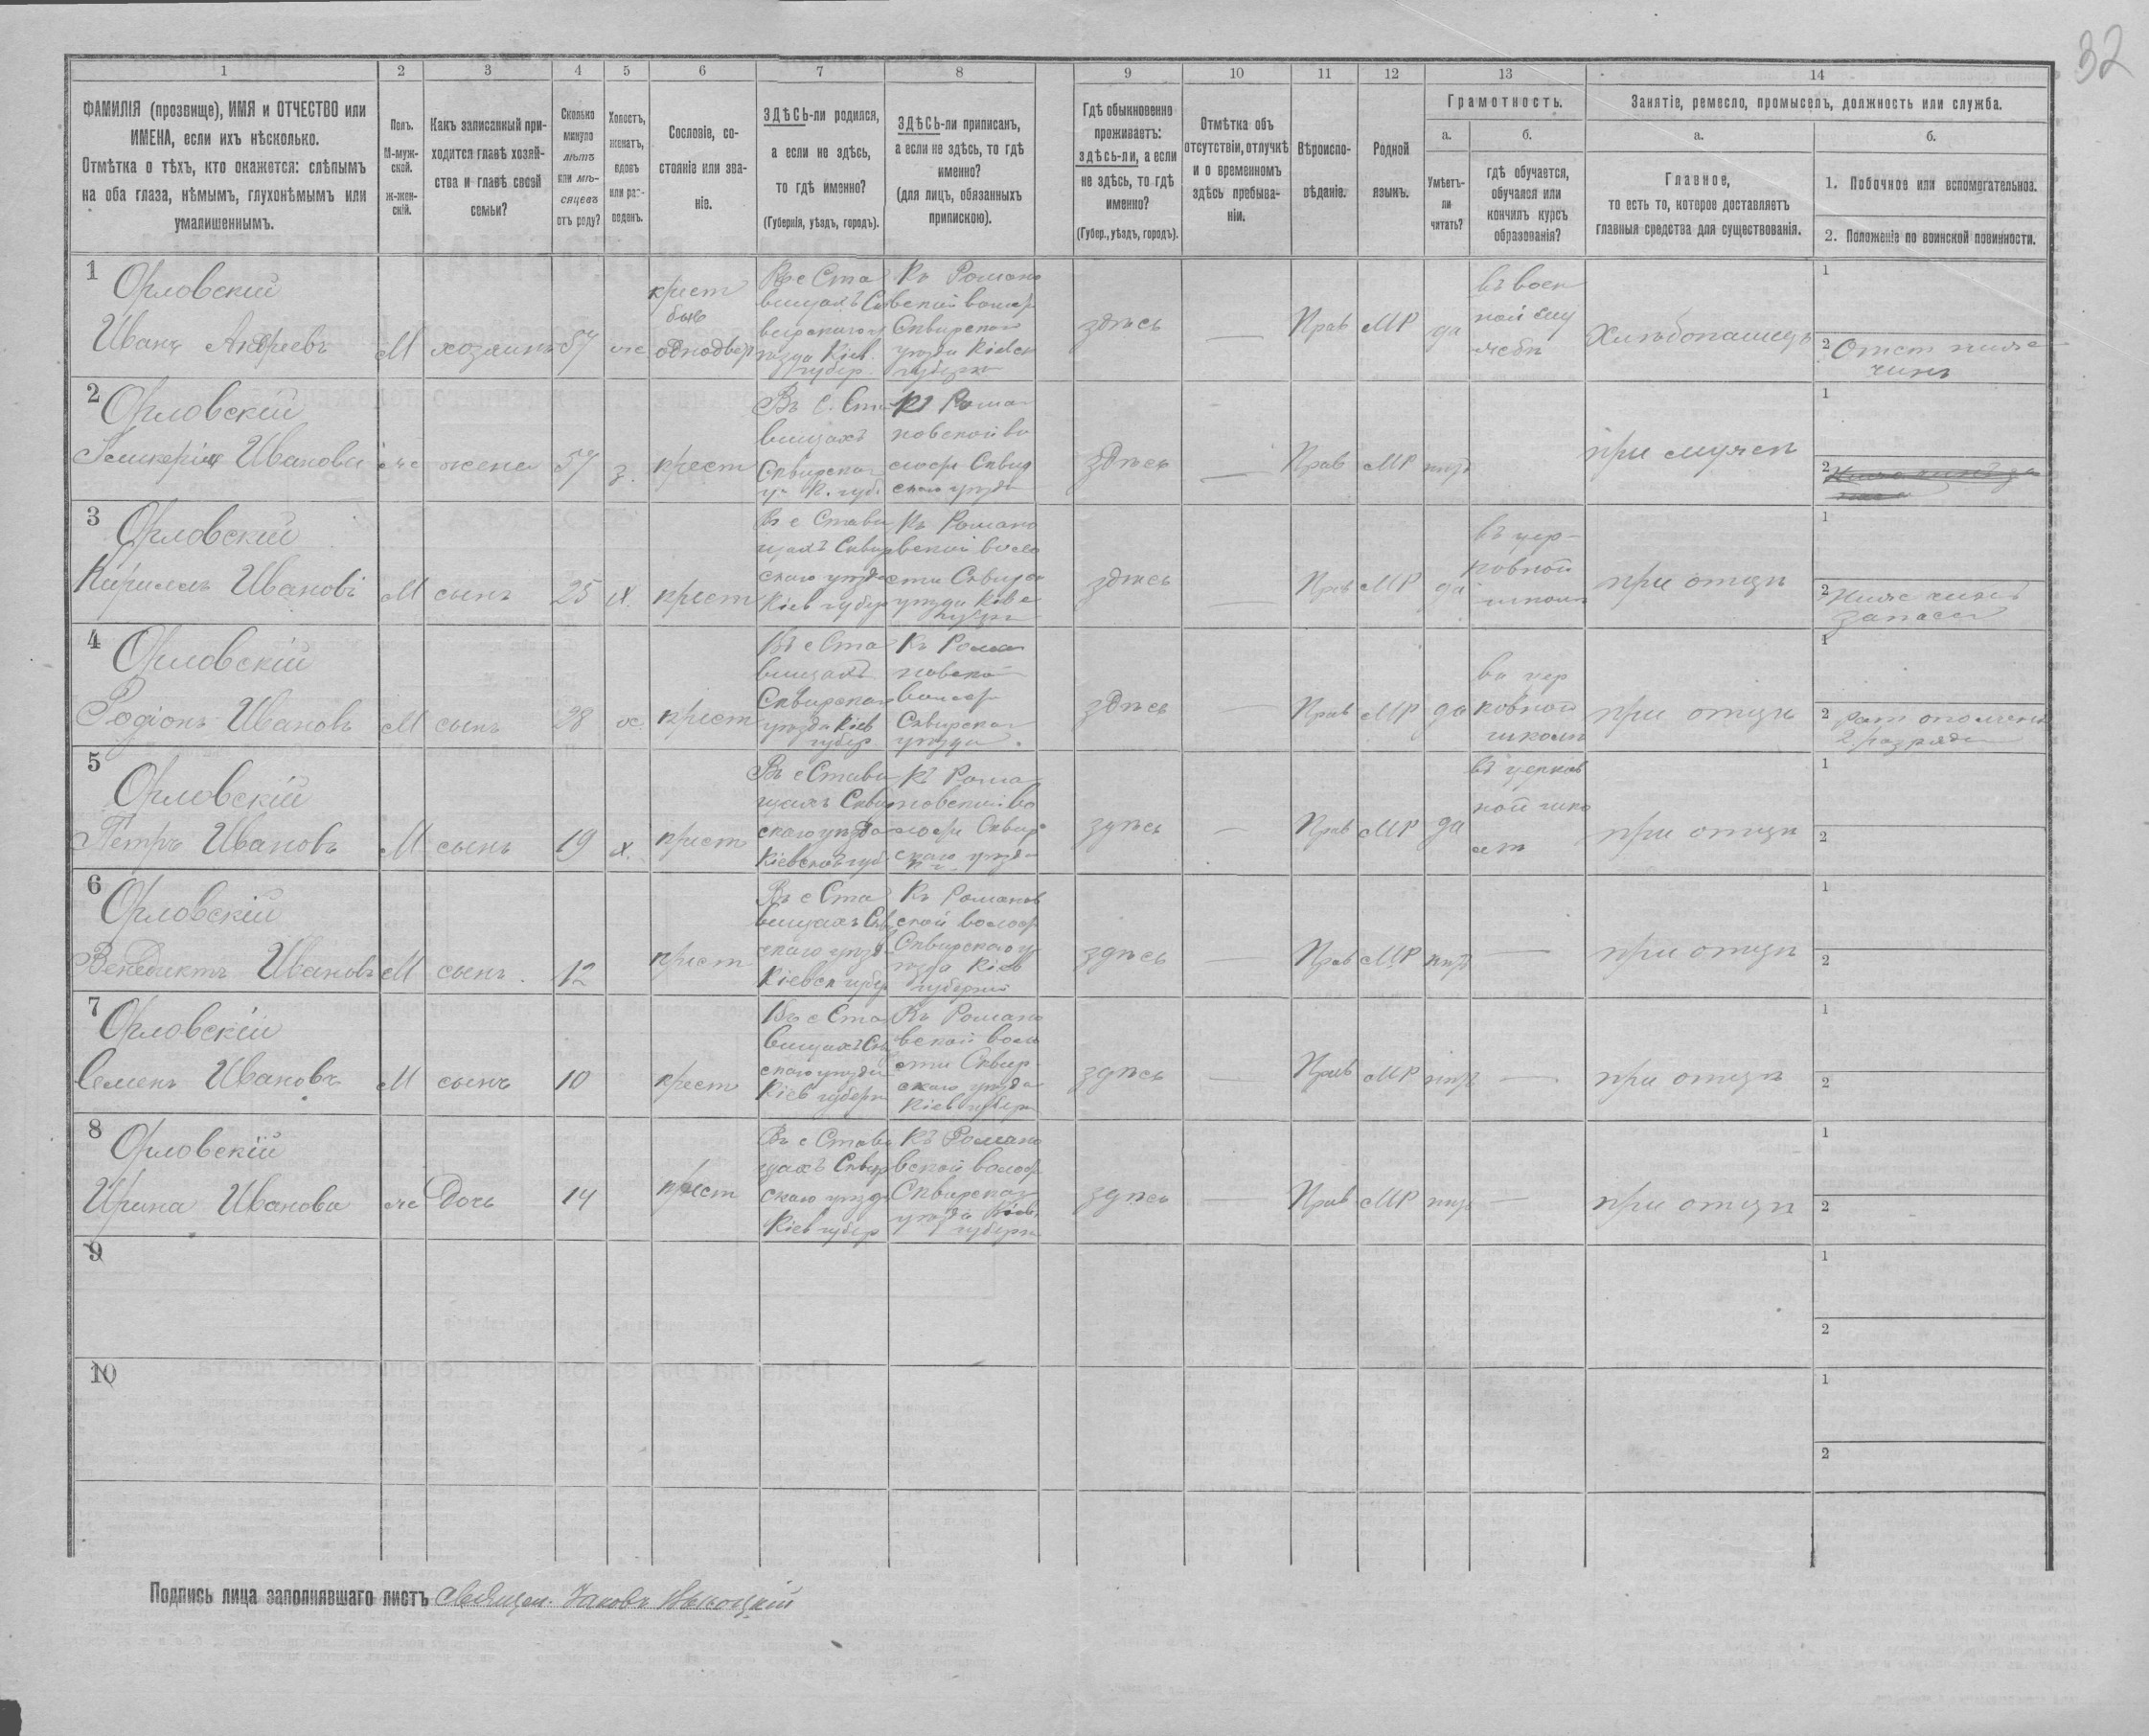 32
1 2 3 4 5 6 7 8 9 10 11 12 13 14
ФАМИЛІЯ (прозвище), ИМЯ и ОТЧЕСТВО или
ИМЕНА, если ихъ нѣсколько.
Отмѣтка о тѣхъ, кто окажется: слѣпымъ
на оба глаза, нѣмымъ, глухонѣмымъ или
умалишеннымъ.
Полъ.
М-муж-
ской.
ж-жен-
скій.
Какъ записанный при-
ходится главѣ хозяй-
ства и главѣ своей
семьи?
Сколько
минуло
лѣтъ
или мѣ-
сяцевъ
отъ роду?
Холостъ,
женатъ,
вдовъ
или раз-
веденъ.
Сословіе, со-
стояніе или зва-
ніе.
ЗДѢСЬ-ли родился,
а если не здѣсь,
то гдѣ именно?
(Губернія, уѣздъ, городъ).
ЗДѢСЬ-ли приписанъ,
а если не здѣсь, то гдѣ
именно?
(для лицъ, обязанныхъ
припискою).
Гдѣ обыкновенно
проживаетъ:
здѣсь-ли, а если
не здѣсь, то гдѣ
именно?
(Губер., уѣздъ, городъ).
Отмѣтка объ
отсутствіи, отлучкѣ
и о временномъ
здѣсь пребыва-
ніи.
Вѣроиспо-
вѣданіе.
Родной
языкъ.
Грамотность.
а.
Умѣетъ-
ли
читать?
б.
гдѣ обучается,
обучался или
кончилъ курсъ
образованія?
Занятіе, ремесло, промыселъ, должность или служба.
а.
Главное,
то есть то, которое доставляетъ
главныя средства для существованія.
б.
1. Побочное или вспомогательное.
2. Положеніе по воинской повинности.
1
Орловскій
Иванъ
М хозяинъ 57
крест
быв
Въ с Ста
вищахъ
губер
Къ Романо
вской волос
Сквирскаго
уѣзда Кіевск
здѣсь — Прав МР да
въ воен
ной слу
жбѣ
Хлѣбопашецъ
1
2
чинъ
2
Орловскій
Иванова
же жена 57 з. крест
Въ с. Ста
вищахъ
Сквирскаг
Къ Рома
новской во
лост Сквир
скаго уѣзда
здѣсь — Прав МР нѣтъ
при мужѣ
1
2
3
Орловскій
Кириллъ Ивановъ
М сынъ 25 х. крест
Въ с Стави
щахъ Сквир
скаго уѣзда
Кіев губер
Къ Романо
вской воло
сти Сквирск
уѣзда Кіев
здѣсь — Прав МР да
въ цер-
ковной
школѣ
при отцѣ
1
2 Ниж чинъ
запаса
4
Орловскій
Родіонъ Ивановъ
М сынъ 28 крест
Въ с Ста
вищахъ
Сквирскаго
уѣзда Кіев
губер
Къ Рома
новской
волост
Сквирскаго
уѣзда.
здѣсь — Прав МР да
въ цер
ковной
школѣ
при отцѣ
1
2 Рат ополчен
2 разряда
5
Орловскій
Петръ Ивановъ
М сынъ 19 х. крест
Въ с Стави
щахъ Сквир
скаго уѣзда
Кіевской губ
Къ Рома
новской во
лост Сквир
скаго уѣзда
здѣсь — Прав МР да
въ церков
ной шко
лѣ
при отцѣ
1
2
6
Орловскій
Венедиктъ Ивановъ
М сынъ. 12 крест
Въ с Ста
вищахъ Скв
скаго уѣзд
Кіевск губер
Къ Романов
ской волост
Сквирскаго у
ѣзда Кіев
губерніи
здѣсь — Прав МР нѣтъ —
при отцѣ
1
2
7
Орловскій
Семенъ Ивановъ
М сынъ 10 крест
Въ с Ста
вищахъ Скв
скаго уѣзда
Кіев губерн
Къ Романо
вской воло
сти Сквир-
скаго уѣзда
Кіев губерн
здѣсь — Прав МР нѣтъ —
при отцѣ
1
2
8
Орловскій
Ирина Иванова
же дочь 14 крест
Въ с Стави
щахъ Сквир
скаго уѣзд
Кіев губер
Къ Романо
вской волост
Сквирскаго
уѣзда Кіев
губерн
здѣсь — Прав МР нѣтъ —
при отцѣ
1
2
9
1
2
10
1
2
Подпись лица заполнявшаго листъ Священ. Іаковъ